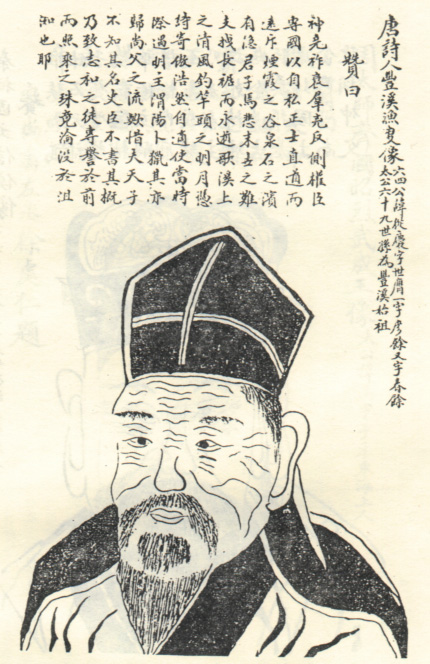 唐詩人豐溪漁叟像
六四公諱從慶字世膺一字彥餘又字春餘
太公六十九世孫為豐溪始祖
贊曰
神堯祚衰羣兇反側權臣
專國以自私正士直道而
遠斥煙霞之谷泉石之濱
有隱君子焉悲末世之難
支拔長裾而永遁歌溪上
之清風釣竿頭之明月憑
詩寄傲浩然自適使當時
際遇明主渭陽卜獵其亦
歸尚父之流歟惜夫天子
不知其名史臣不書其概
乃致志和之徒專譽於前
而照乘之珠竟淪沒於沮
洳也耶